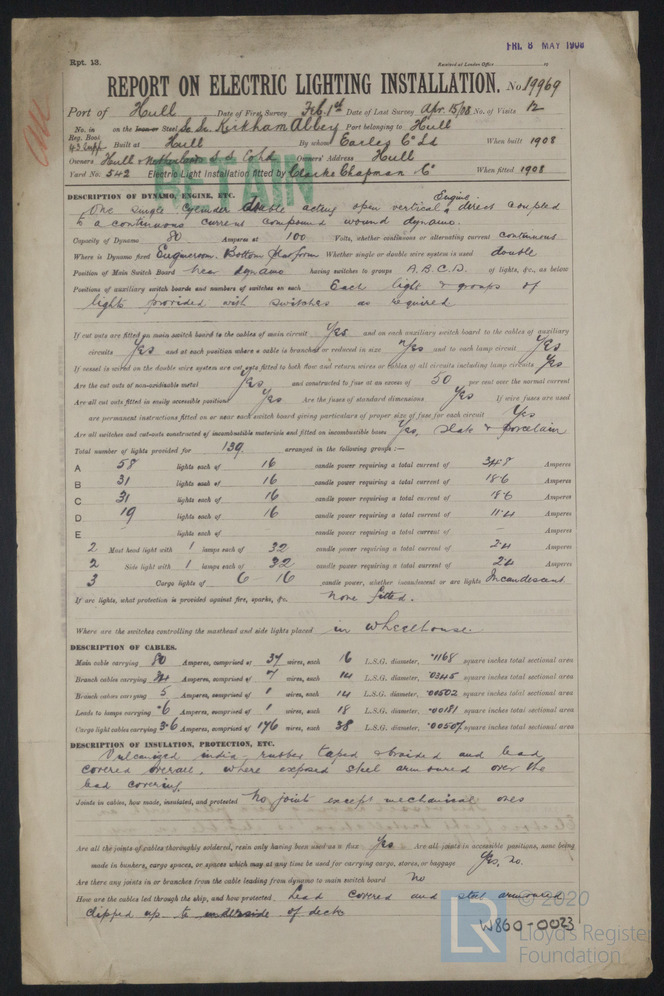 FRI. 8 MAY 1908
Rpt. 13.
Received at London Office
REPORT ON ELECTRIC LIGHTING INSTALLATION. No 19969
Port of Hull Date of First Survey Feb. 1st Date of Last Survey Apr. 15/08 No. of Visits 12
No. in on the Iron or Steel S.S. Kirkham Abbey Port belonging to Hull
Reg. Book
43 Supp Built at Hull By whom Earles Co Ld When built 1908
Owners Hull & Netherlands S.S. Co Ld Owners' Address Hull
Yard No. 542 Electric Light Installation fitted by Clarke Chapman & Co When fitted 1908
RETAIN
DESCRIPTION OF DYNAMO, ENGINE, ETC.
One single cylinder double acting open vertical Engine direct coupled
to a continuous current compound wound dynamo.
Capacity of Dynamo 80 Amperes at 100 Volts, whether continuous or alternating current continuous
Where is Dynamo fixed Engineroom Bottom Platform Whether single or double wire system is used double
Position of Main Switch Board near dynamo having switches to groups A.B.C.D. of lights, &c., as below
Positions of auxiliary switch boards and numbers of switches on each Each light & groups of
lights provided with switches as required
If cut outs are fitted on main switch board to the cables of main circuit Yes and on each auxiliary switch board to the cables of auxiliary
circuits Yes and at each position where a cable is branched or reduced in size Yes and to each lamp circuit Yes
If vessel is wired on the double wire system are cut outs fitted to both flow and return wires or cables of all circuits including lamp circuits Yes
Are the cut outs of non-oxidizable metal Yes and constructed to fuse at an excess of 50 per cent over the normal current
Are all cut outs fitted in easily accessible positions Yes Are the fuses of standard dimensions Yes If wire fuses are used
are permanent instructions fitted on or near each switch board giving particulars of proper size of fuse for each circuit Yes
Are all switches and cut-outs constructed of incombustible materials and fitted on incombustible bases Yes, slate & porcelain
Total number of lights provided for 139 arranged in the following groups :—
A 58 lights each of 16 candle power requiring a total current of 34.8 Amperes
B 31 lights each of 16 candle power requiring a total current of 18.6 Amperes
C 31 lights each of 16 candle power requiring a total current of 18.6 Amperes
D 19 lights each of 16 candle power requiring a total current of 11.4 Amperes
E lights each of candle power requiring a total current of — Amperes
2 Mast head light with 1 lamps each of 32 candle power requiring a total current of 2.4 Amperes
2 Side light with 1 lamps each of 32 candle power requiring a total current of 2.4 Amperes
3 Cargo lights of 6 16 candle power, whether incandescent or arc lights Incandescent
If arc lights, what protection is provided against fire, sparks, &c. None fitted.
Where are the switches controlling the masthead and side lights placed in wheelhouse.
DESCRIPTION OF CABLES.
Main cable carrying 80 Amperes, comprised of 37 wires, each 16 L.S.G. diameter, .1168 square inches total sectional area
Branch cables carrying Amperes, comprised of 7 wires, each 14 L.S.G. diameter, .03445 square inches total sectional area
Branch cables carrying 5 Amperes, comprised of 1 wires, each 14 L.S.G. diameter, .00502 square inches total sectional area
Leads to lamps carrying .6 Amperes, comprised of 1 wires, each 18 L.S.G. diameter, .00181 square inches total sectional area
Cargo light cables carrying 3.6 Amperes, comprised of 176 wires, each 38 L.S.G. diameter, .00507 square inches total sectional area
DESCRIPTION OF INSULATION, PROTECTION, ETC.
Vulcanized india rubber taped & braided and lead
covered overall, where exposed steel armoured over the
lead covering.
Joints in cables, how made, insulated, and protected No joints except mechanical ones
Are all the joints of cables thoroughly soldered, resin only having been used as a flux Yes Are all joints in accessible positions, none being
made in bunkers, cargo spaces, or spaces which may at any time be used for carrying cargo, stores, or baggage Yes, No.
Are there any joints in or branches from the cable leading from dynamo to main switch board No
How are the cables led through the ship, and how protected Lead covered and steel armoured
clipped up to underside of decks
W860-0023
© 2020
LR
Lloyd's Register
Foundation